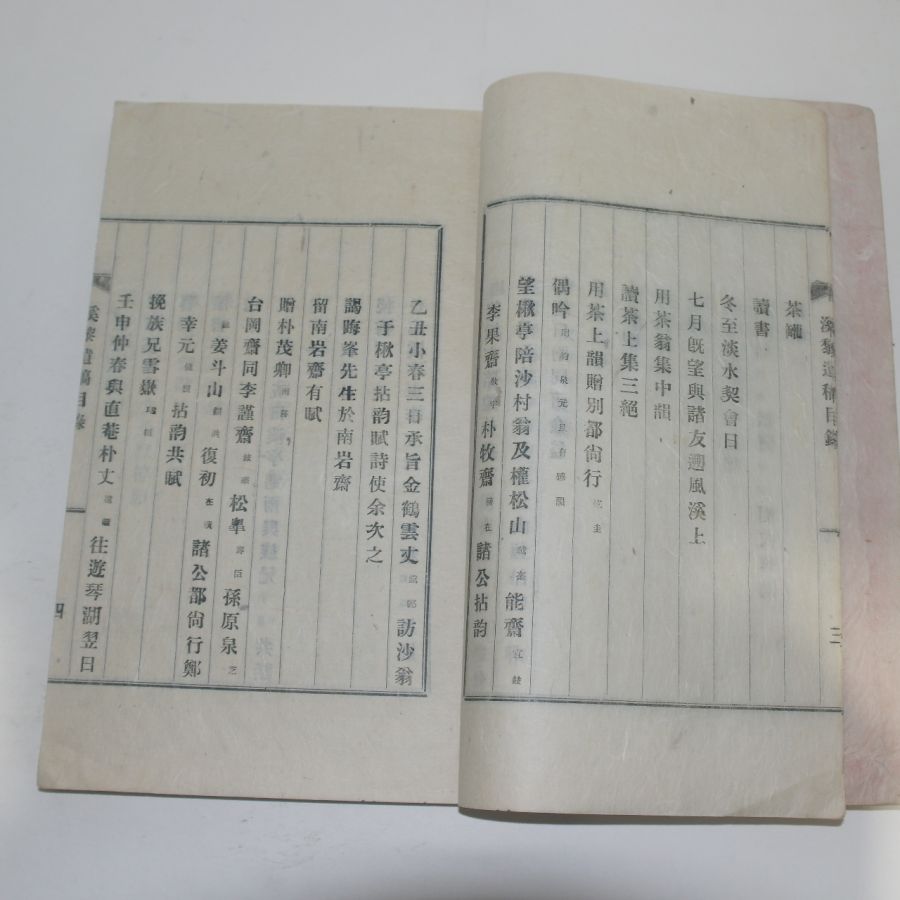 茶罐
讀書
冬至淡水契會日
七月旣望與諸友遡風溪上
用茶翁集中韻
讀茶上集三絕
用茶上韻贈別都尙行
偶吟
望楸亭陪沙村翁及權松山 能齋
李果齋 朴牧齋 諸公拈韵
三
乙丑小春三日承旨金鶴雲丈 訪沙翁
于楸亭拈韵賦詩使余次之
謁晦峯先生於南岩齋
留南岩齋有賦
贈朴茂卿
台岡齋同李謹齋 松皐 孫原泉
姜斗山 復初 諸公都尙行鄭
幸元 拈韵共賦
挽族兄雪嶽
壬申仲春與直菴朴丈 往遊琴湖翌日
遺稿目錄
四